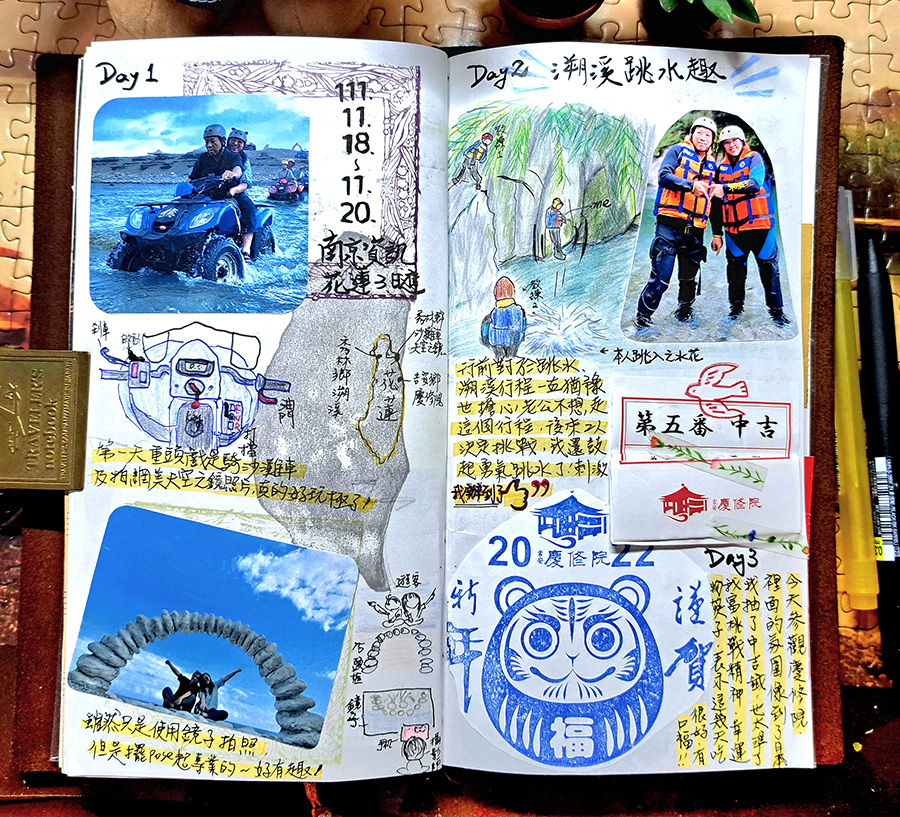 Day 1
111.
11.
18.
~
11.
20.
南京資訊
花蓮3日遊
剎車
油門
打檔
秀林鄉溯溪
花蓮
沙灘車
天空之鏡
吉安鄉
慶修院
第一天重頭戲是騎沙灘車
及拍網美天空之鏡照片,真的好玩極了!
遊客
石頭
鏡子
雖然只是使用鏡子拍照
但是擺pose超專業的~好有趣!
TRAVELER'S
notebook
Day2 溯溪跳水趣
教練
me
教練
←本人跳入之水花
行前對於跳水、
溯溪行程一直猶豫
也擔心,老公不想走
這個行程,後來2人
決定挑戰,我還鼓
起勇氣跳水了!刺激
我辦到了
第五番 中吉
慶修院
2022
吉安慶修院
新年
謹賀
福
Day3
今天參觀慶修院
裡面的氛圍像到了日本
我抽了中吉籤也太準了
我富挑戰精神幸運
表示這幾天吃
很好有
口福!!